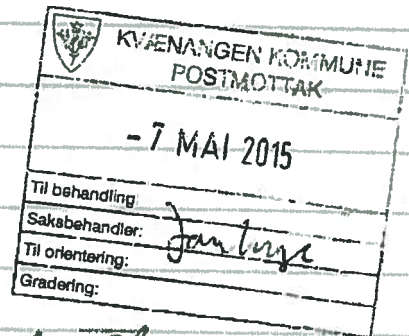 KVÆNANGEN KOMMUNE
POSTMOTTAK
- 7 MAI 2015
Til behandling:
Saksbehandler: Jan Inge
Til orientering:
Gradering: